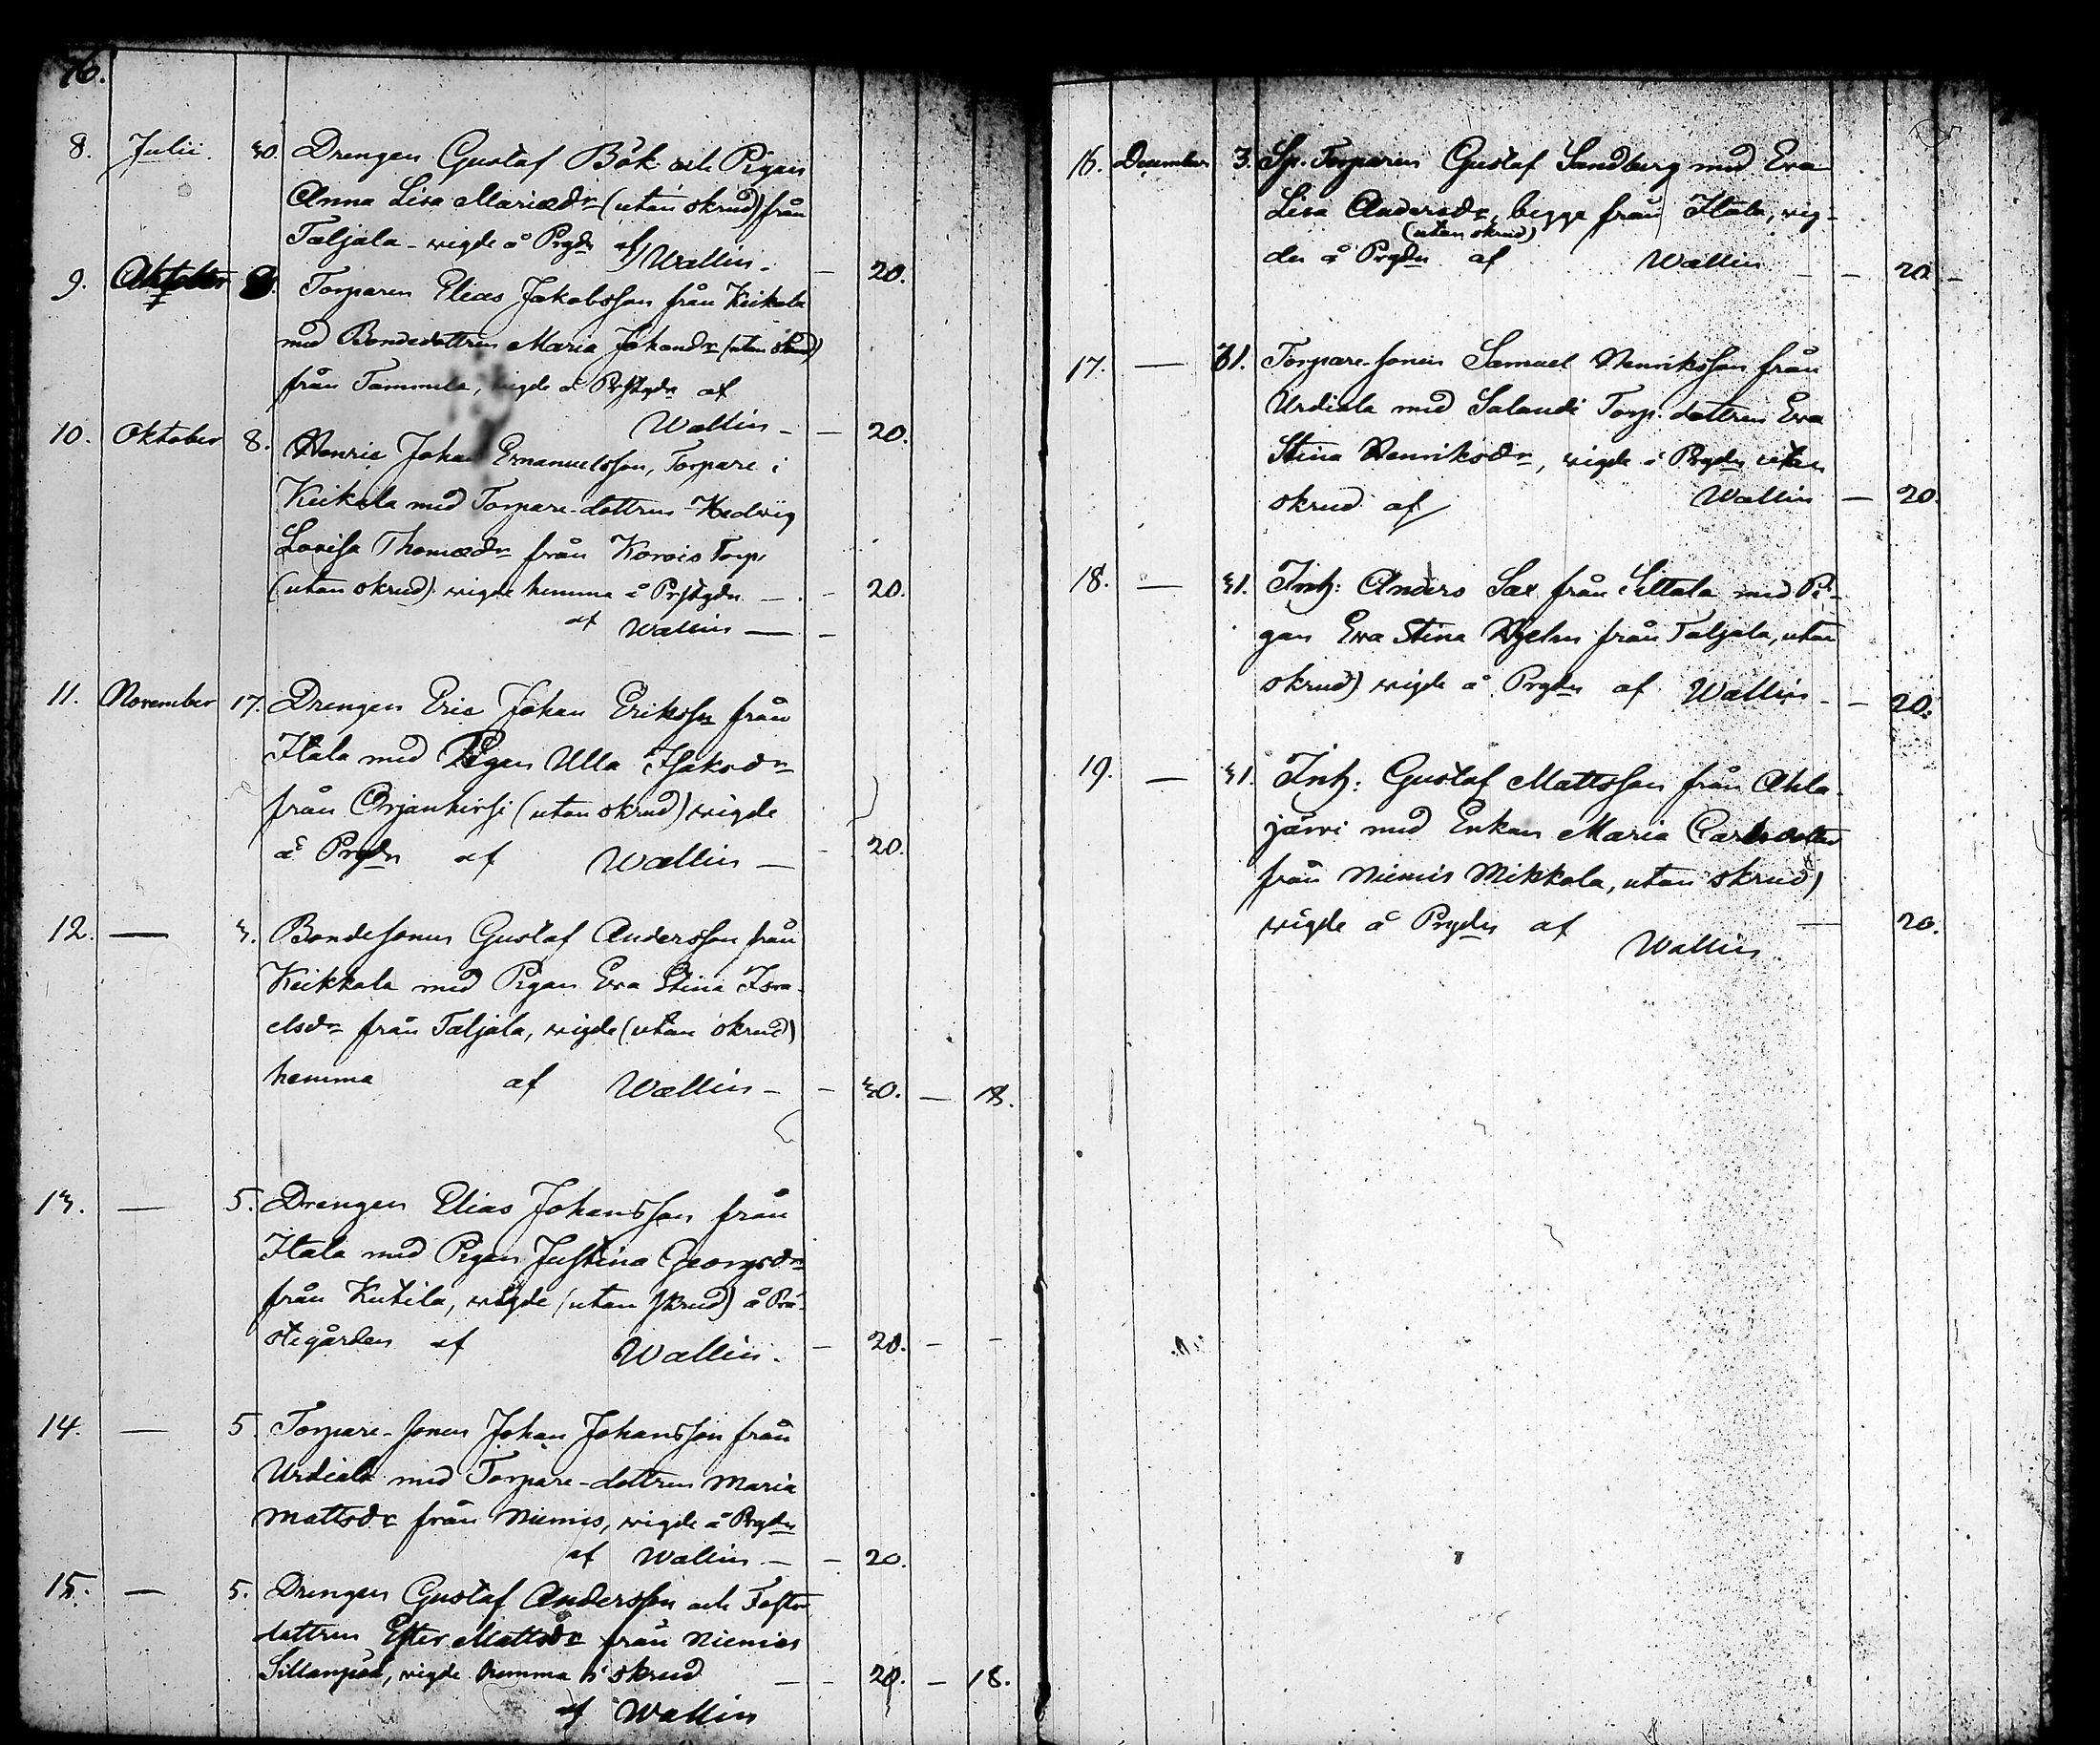 76.
8. Julii. 30. Drengen Gustaf Bök och Pigan
Anna Lisa Mariædr (utan skrud) från
Taljala - wigde å Prgdn af Wallin. - 20.
9. Oktober 8. Torparen Elias Jakobsson från Keikala
med Bondedottren Maria Johandr (utan skrud)
från Tammela, wigde å Prstgdn af
Wallin - - 20.
10. Oktober 8. Henric Johan Emanuelsson, Torpare i
Keikala med Torpare-dottren Hedwig
Lovisa Thomædr från Korois Torp
(utan skrud) wigde hemma å Prstgdn - - 20.
af Wallin - -
11. November 17. Drengen Eric Johan Eriksson från
Itala med Pigan Ulla Isaksdr
från Orjanhirsi (utan skrud) wigde
å Prgdn af Wallin - - 20.
12. — 3. Bondesonen Gustaf Andersson från
Keikkala med Pigan Eva Stina Isra-
elsdr från Taljala, wigde (utan skrud)
hemma af Wallin - - 30. - 18.
13. — 5. Drengen Elias Johansson från
Itala med Pigan Justina Georgsdr
från Kutila, wigde (utan skrud) å Prä-
stegården af Wallin. - 20. - -
14. — 5. Torpare-sonen Johan Johansson från
Urdiala med Torpare-dottren Maria
Mattsdr från Niemis, wigde å Prgdn
af Wallin - - 20.
15. — 5. Drengen Gustaf Andersson och Foster
dottren Ester Mattsdr från Niemis
Sillanpää, wigde hemma i skrud - - 20. - 18.
af Wallin
16. December 3. Sp. Torparen Gustaf Sandberg med Eva
Lisa Andersdr, begge från Itala, wig-
(utan skrud)
de å Prgdn af Wallin - - 20 -
17. — 31. Torpare-sonen Samuel Henriksson från
Urdiala med Salaudi Torp. dottren Eva
Stina Henriksdr, wigde å Prgdn utan
skrud af Wallin - 20.
18. — 31. Inh: Anders Sax från Sillala med Pi-
gan Eva Stina från Taljala, utan
skrud) wigde å Prgdn af Wallin - - 20.
19. — 31. Inh: Gustaf Mattsson från Ahla-
järvi med Enkan Maria Carlsdotter
från Niemis Mikkola, utan skrud)
wigde å Prgdn af - 20.
Wallin